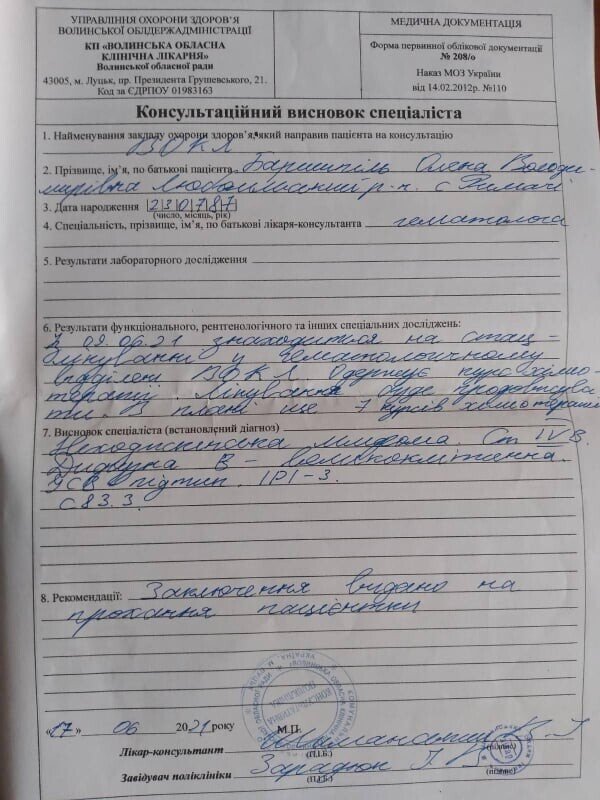 УПРАВЛІННЯ ОХОРОНИ ЗДОРОВ'Я
ВОЛИНСЬКОЇ ОБЛДЕРЖАДМІНІСТРАЦІЇ
КП «ВОЛИНСЬКА ОБЛАСНА
КЛІНІЧНА ЛІКАРНЯ»
Волинської обласної ради
43005, м. Луцьк, пр. Президента Грушевського, 21.
Код за ЄДРПОУ 01983163
МЕДИЧНА ДОКУМЕНТАЦІЯ
Форма первинної облікової документації
№ 208/о
Наказ МОЗ України
від 14.02.2012р. №110
Консультаційний висновок спеціаліста
1. Найменування закладу охорони здоров'я, який направив пацієнта на консультацію
ВОКЛ
2. Прізвище, ім'я, по батькові пацієнта Баришпіль Олена Володи-
мирівна Любомльський р-н. с Римачі
3. Дата народження 230787
(число, місяць, рік)
4. Спеціальність, прізвище, ім'я, по батькові лікаря-консультанта гематолога
5. Результати лабораторного дослідження
6. Результати функціонального, рентгенологічного та інших спеціальних досліджень:
З 09.06.21 знаходиться на стац-
лікуванні у гематологічному
відділені ВОКЛ. Одержує курс хіміо-
терапії. Лікування буде продовжува
ти. В плані ще 7 курсів хіміотерапії
7. Висновок спеціаліста (встановлений діагноз)
Неходжкінська лімфома. Ст IV В.
Дифузна В - великоклітинна.
GCB підтип. IPI-3.
С 83.3.
8. Рекомендації: Заключення видано на
прохання пацієнтки
«17» 06 2021 року
М.П.
Лікар-консультант
(П.І.Б.) (підпис)
Завідувач поліклініки
(П.І.Б.) (підпис)